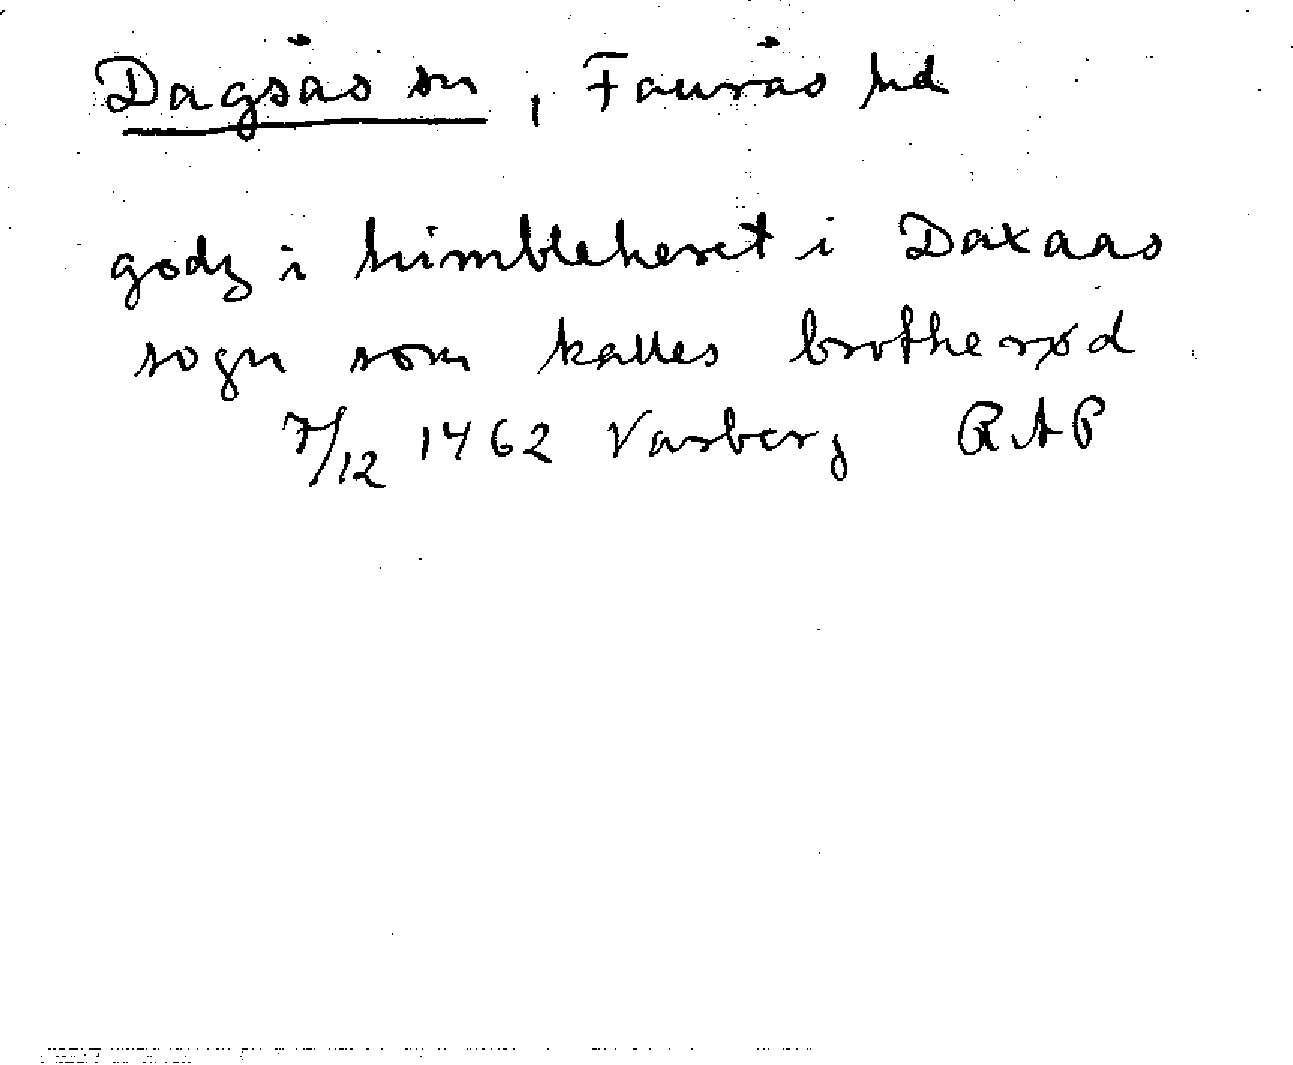 Dagsås sn, Faurås hd
godz i himbleheret i Daxaas
sogn som kalles brotherød
7/12 1462 Varberg RAP